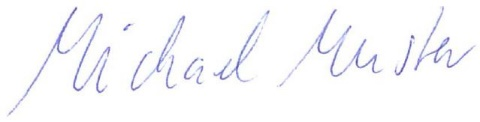 Michael Muster